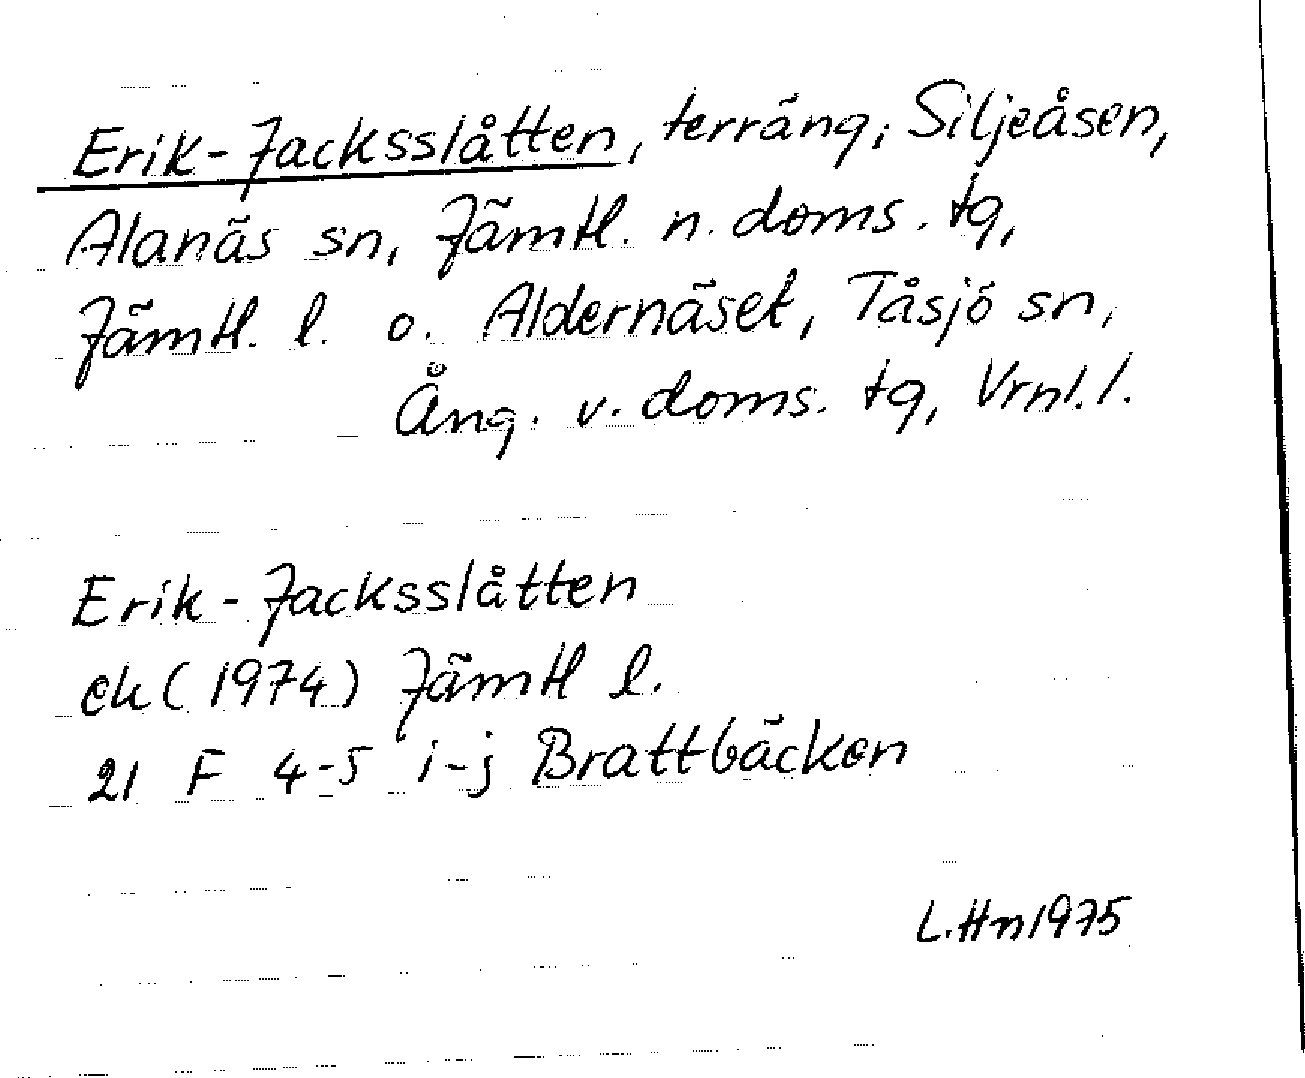 Erik-Jacksslåtten, terräng, Siljeåsen,
Alanäs sn, Jämtl. n. doms. tg,
Jämtl. l. o. Aldernäset, Tåsjö sn,
Ång. v. doms. tg, Vrnl. l.
Erik-Jacksslåtten
ek (1974) Jämtl l.
21 F 4-5 i-j Brattbäcken
L.Hn 1975